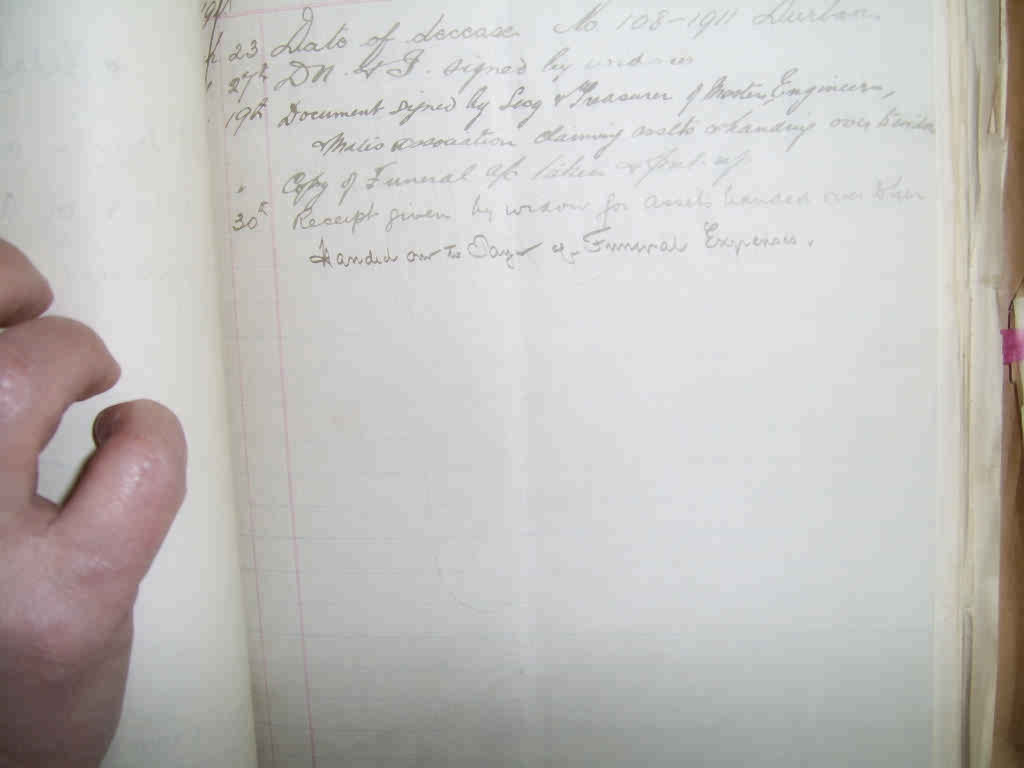 1911
23 Date of decease. No 108-1911 Durban
27th DN. & I. signed by widow
19th Document signed by Secy & Treasurer of Masters, Engineers,
& Mates association claiming assets & handing over to widow
" Copy of Funeral a/c taken & put up
30th Receipt given by widow for assets handed over
handed over to pay of Funeral Expenses.